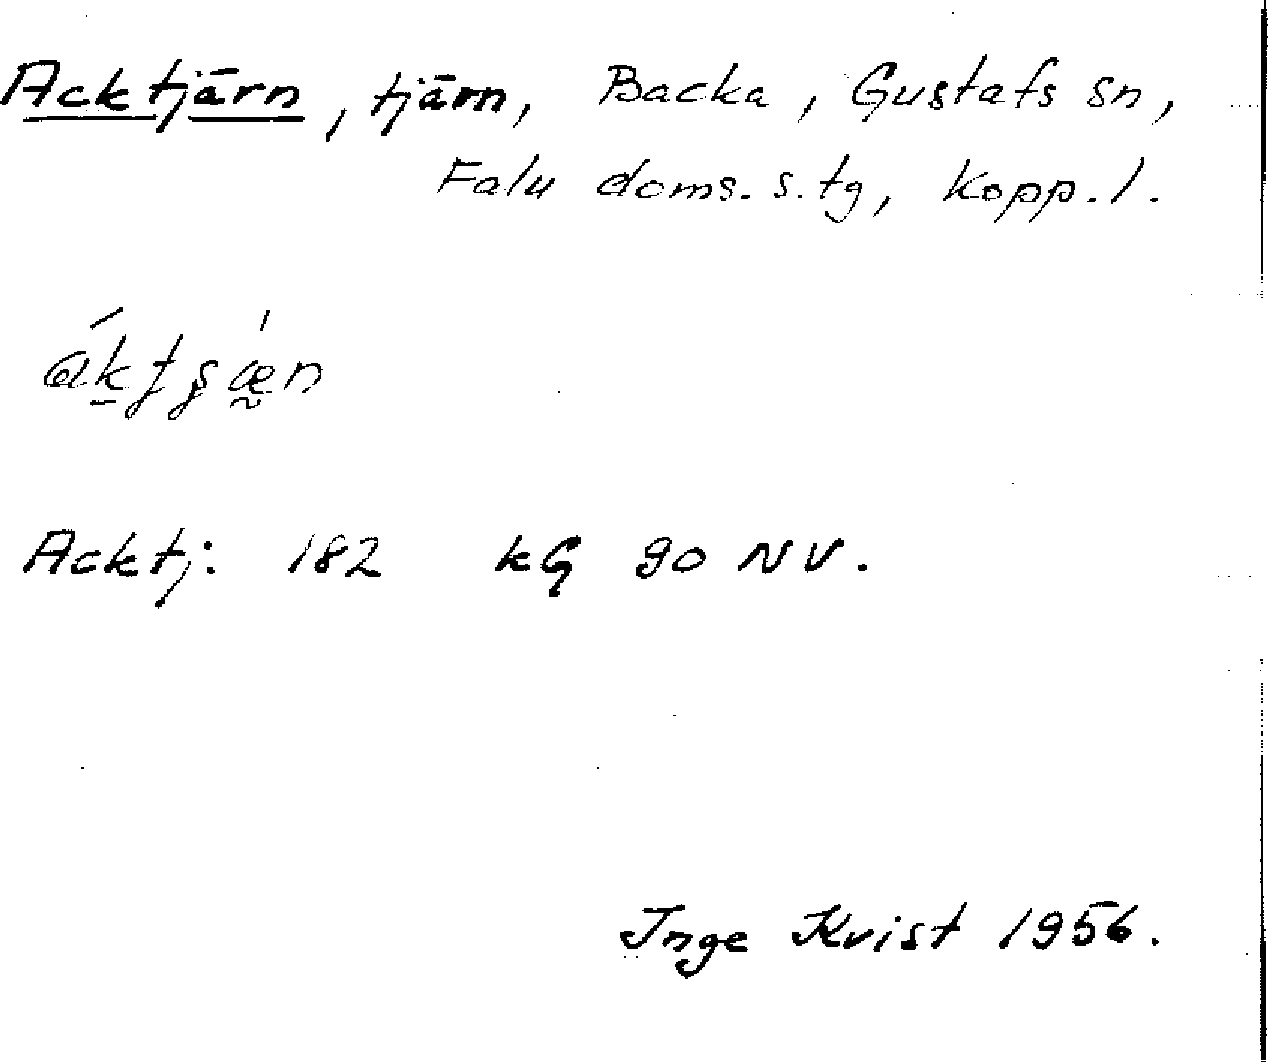 Acktjärn, tjärn, Backa, Gustafs sn,
Falu doms. s. tg, Kopp. l.
Acktj: 182 kG 90 NV.
Inge Kvist 1956.